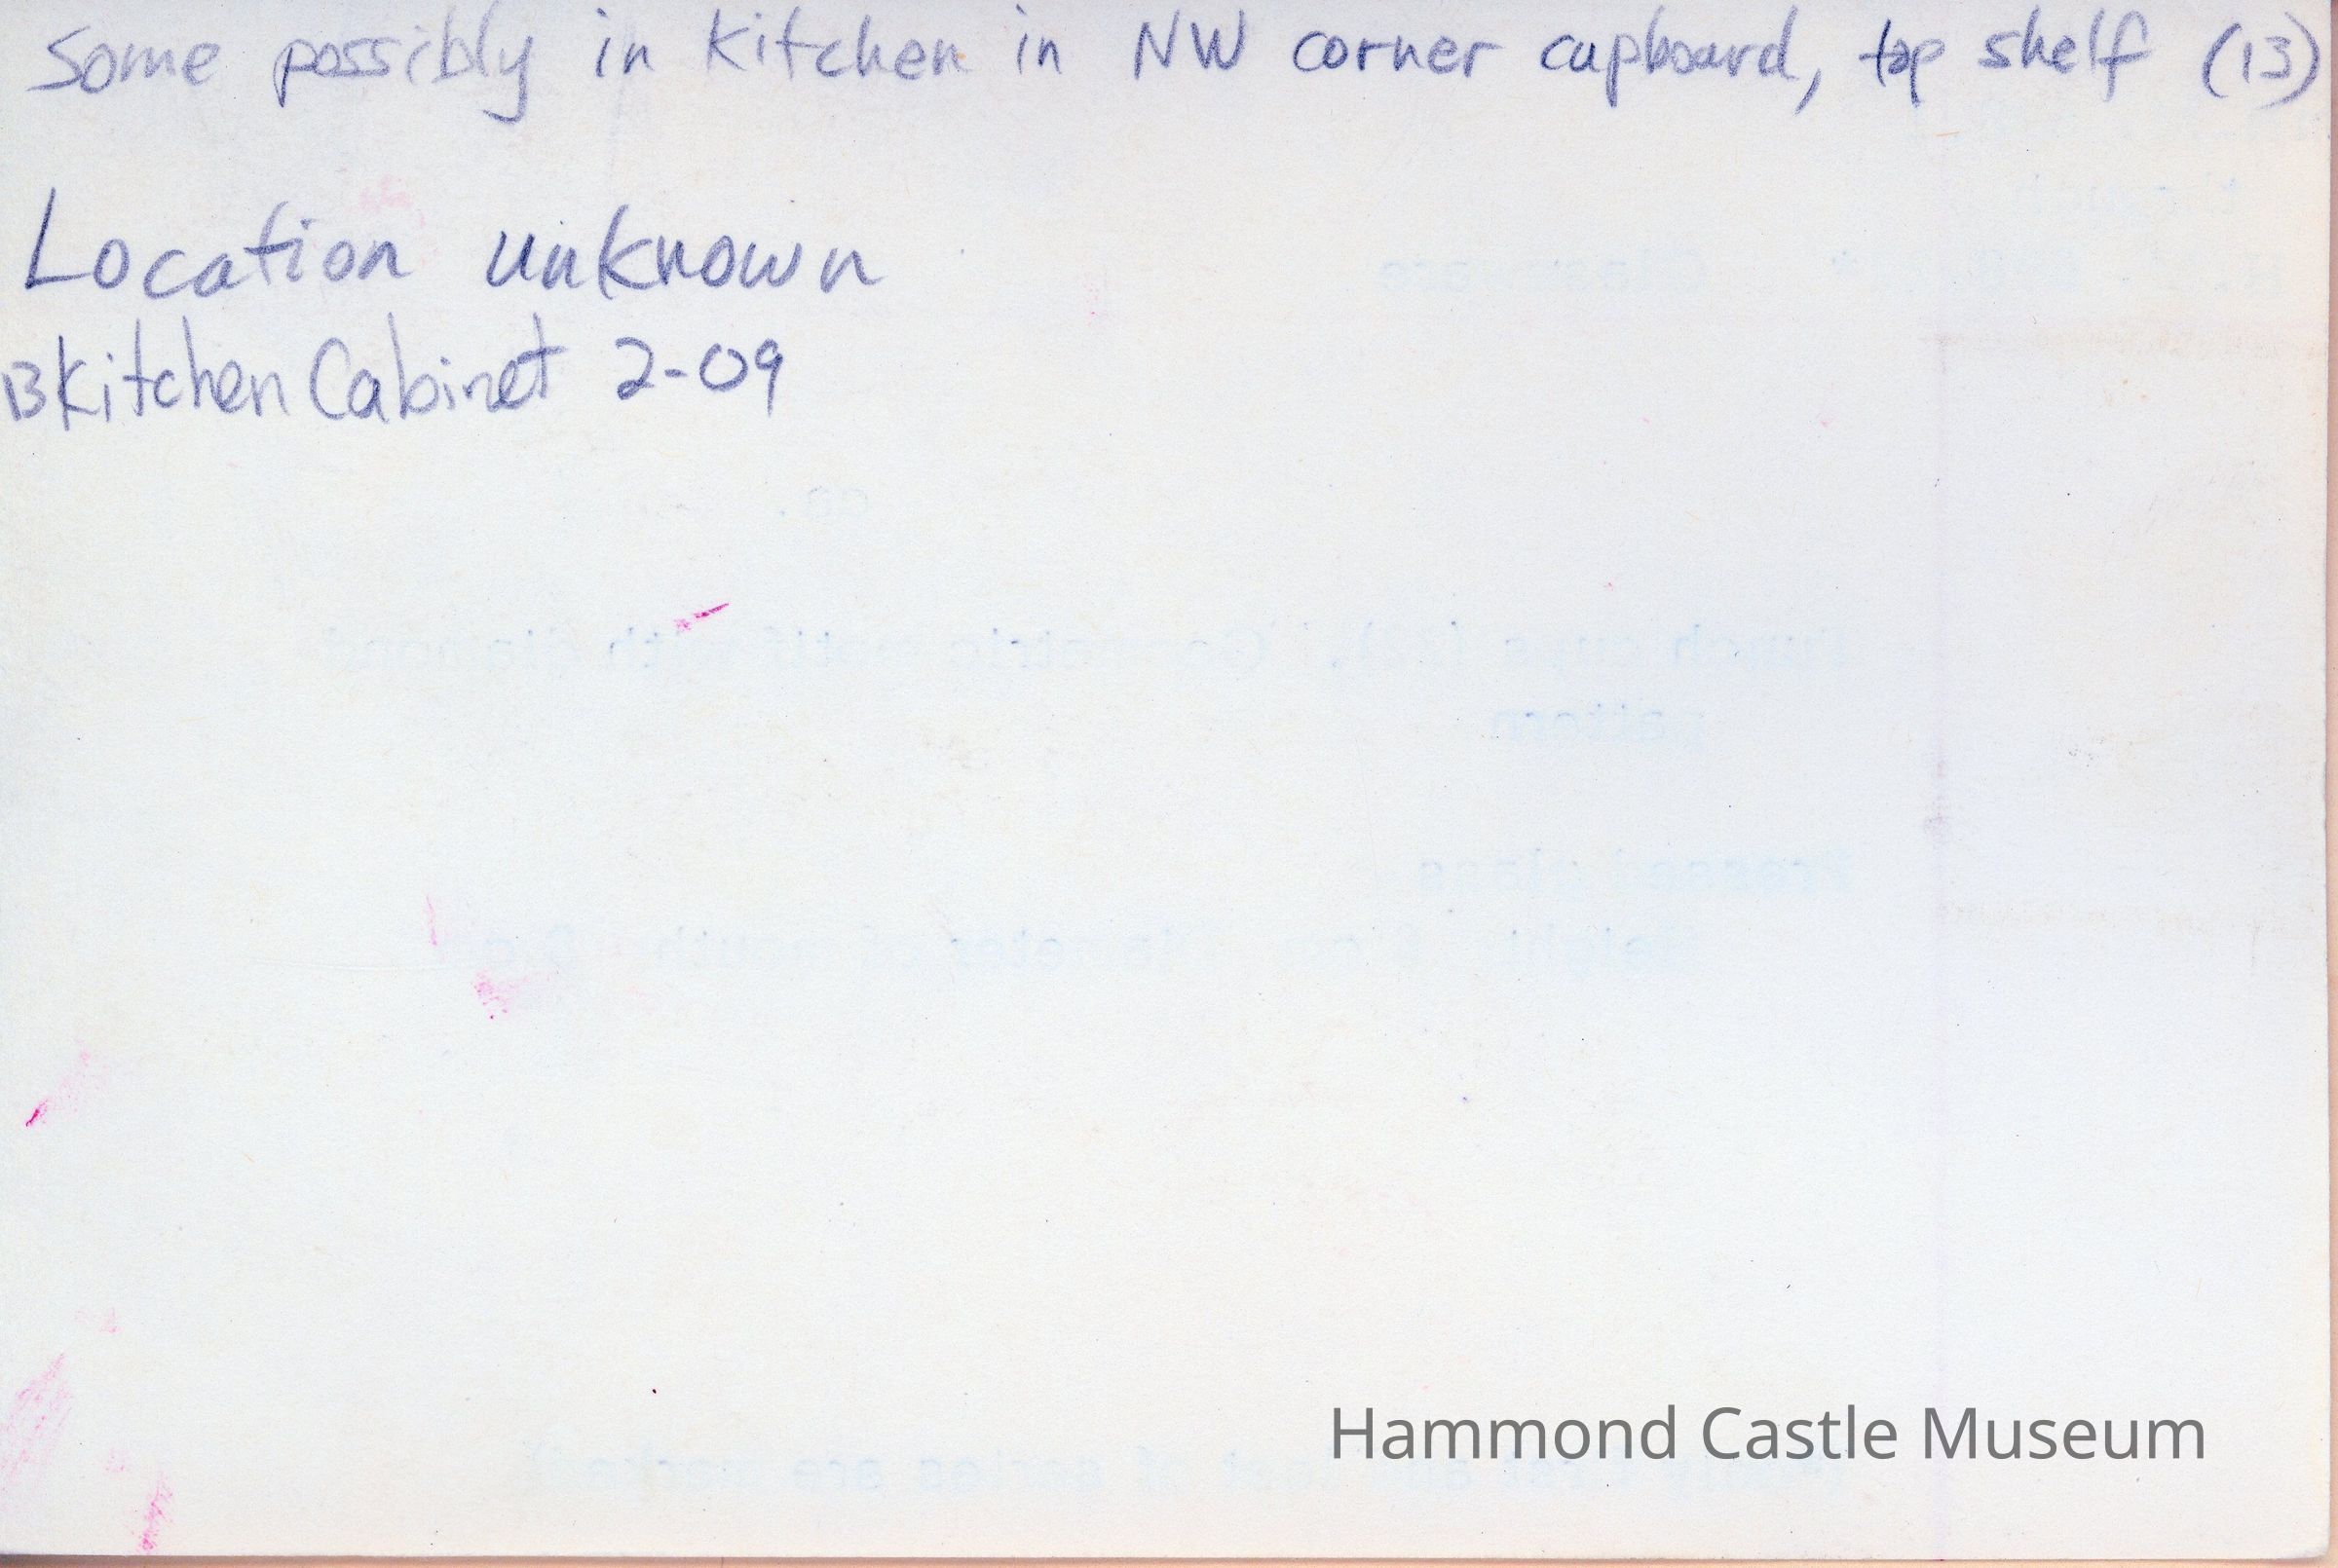 Some possibly in Kitchen in NW corner cupboard, top shelf (13)
Location unknown
13 Kitchen Cabinet 2-09
Hammond Castle Museum